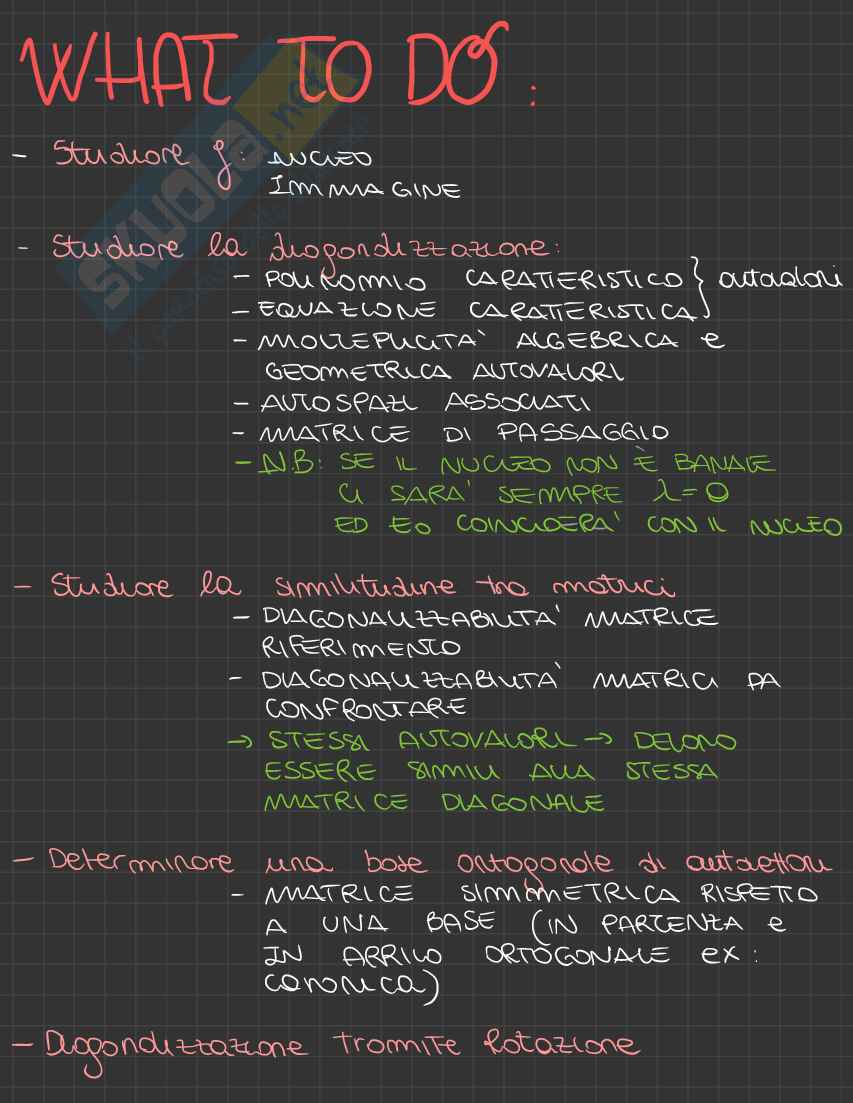 WHAT TO DO:
- Studiare f: NUCLEO
IMMAGINE
- Studiare la diagonalizzazione:
- POLINOMIO CARATTERISTICO } autovalori
- EQUAZIONE CARATTERISTICA
- MOLTEPLICITA' ALGEBRICA e
GEOMETRICA AUTOVALORI
- AUTOSPAZI ASSOCIATI
- MATRICE DI PASSAGGIO
- N.B: SE IL NUCLEO NON È BANALE
CI SARA' SEMPRE λ=0
ED E0 COINCIDERA' CON IL NUCLEO
- Studiare la similitudine tra matrici
- DIAGONALIZZABILITA' MATRICE
RIFERIMENTO
- DIAGONALIZZABILITA' MATRICI DA
CONFRONTARE
→ STESSI AUTOVALORI → DEVONO
ESSERE SIMILI ALLA STESSA
MATRICE DIAGONALE
- Determinare una base ortogonale di autovettori
- MATRICE SIMMETRICA RISPETTO
A UNA BASE (IN PARTENZA e
IN ARRIVO ORTOGONALE ex:
canonica)
- Diagonalizzazione tramite rotazione
SKUOLA.net